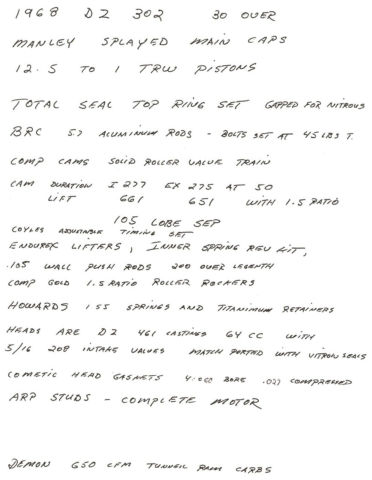 1968 DZ 302 30 OVER
MANLEY SPLAYED MAIN CAPS
12.5 TO 1 TRW PISTONS
TOTAL SEAL TOP RING SET GAPPED FOR NITROUS
BRC 57 ALUMINUM RODS - BOLTS SET AT 45 LBS T.
COMP CAMS SOLID ROLLER VALUE TRAIN
CAM DURATION I 277 EX 275 AT 50
LIFT 661 651 WITH 1.5 RATIO
105 LOBE SEP
COYLES ADJUSTABLE TIMING SET
ENDUREX LIFTERS, INNER SPRING REV KIT,
.105 WALL PUSH RODS 200 OVER LEGENTH
COMP GOLD 1.5 RATIO ROLLER ROCKERS
HOWARDS 1.55 SPRINGS AND TITANIMUM RETAINERS
HEADS ARE DZ 461 CASTINGS 64 CC WITH
5/16 208 INTAKE VALUES MATCH PORTED WITH VITRON SEALS
COMETIC HEAD GASKETS BORE .027 COMPRESSED
ARP STUDS - COMPLETE MOTOR
DEMON 650 CFM TUNNEL RAM CARBS